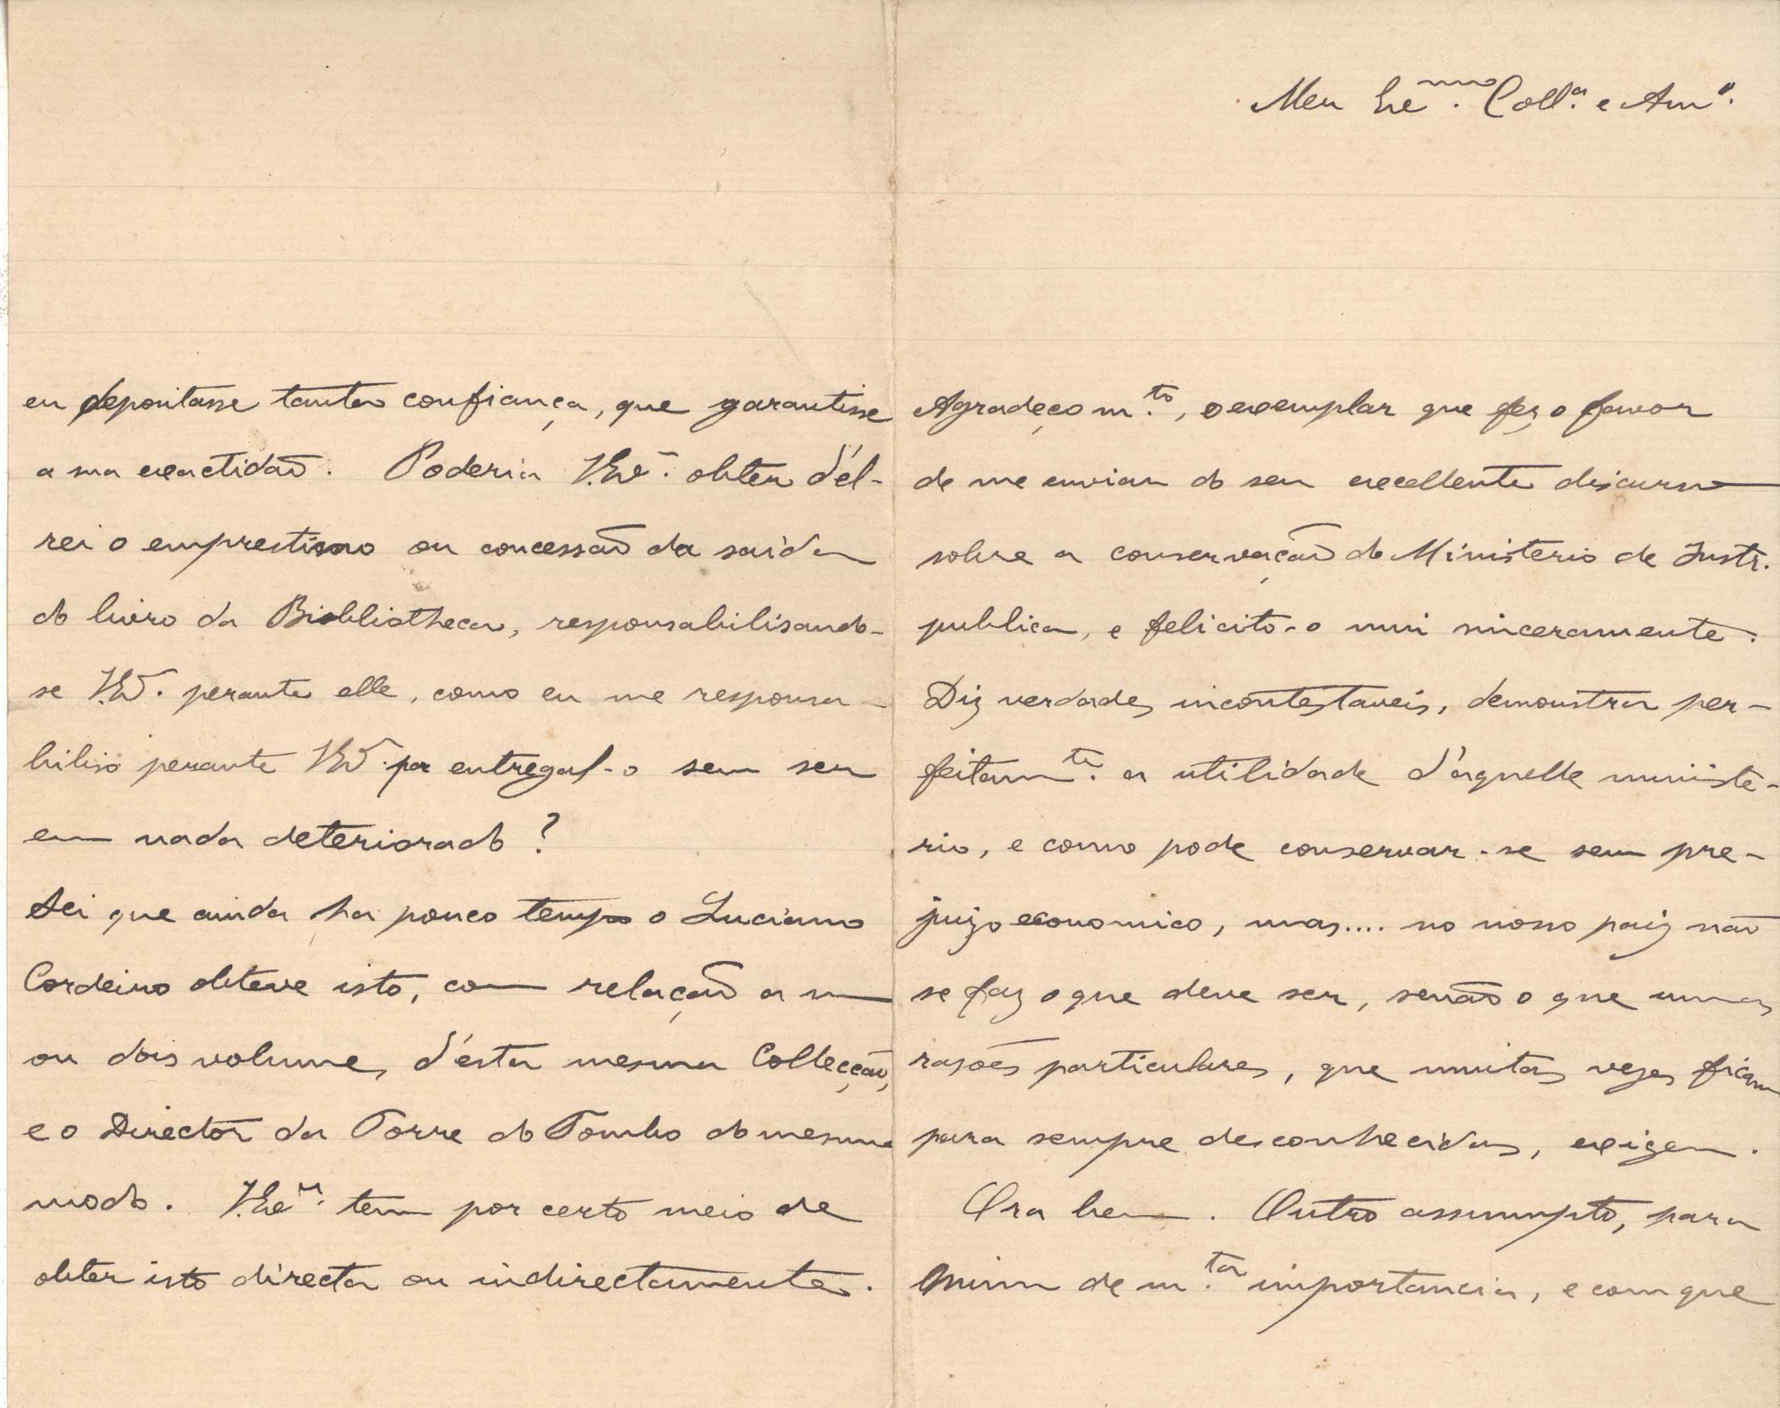 Meu Ex.mo Coll.a e Am.o
Agradeço m.to, o exemplar que fez o favor
de me enviar do seu excellente discurso
sobre a conservação do Ministerio de Instr.
publica, e felicito-o mui sinceramente.
Diz verdades incontestaveis, demonstra per-
feitam.te a utilidade d'aquelle ministe-
rio, e como pode conservar-se sem pre-
juizo economico, mas.... no nosso paiz não
se faz o que deve ser, senão o que umas
rasões particulares, que muitas vezes ficam
para sempre desconhecidas, exigem.
Ora bem. Outro assumpto, para
mim de m.ta importancia, e com que
eu depositasse tanta confiança, que garantisse
a sua exactidão. Poderia V.Ex.a obter d'el-
rei o emprestimo ou concessão da saida
do livro da Bibliotheca, responsabilisando-
se V.Ex.a perante elle, como eu me responsa-
biliso perante V.Ex.a por entregal-o sem ser
em nada deteriorado?
Sei que ainda ha pouco tempo o Luciano
Cordeiro obteve isto, com relação a um
ou dois volumes d'esta mesma Collecção,
e o Director da Torre do Tombo do mesmo
modo. V.Ex.a tem por certo meio de
obter isto directa ou indirectamente.